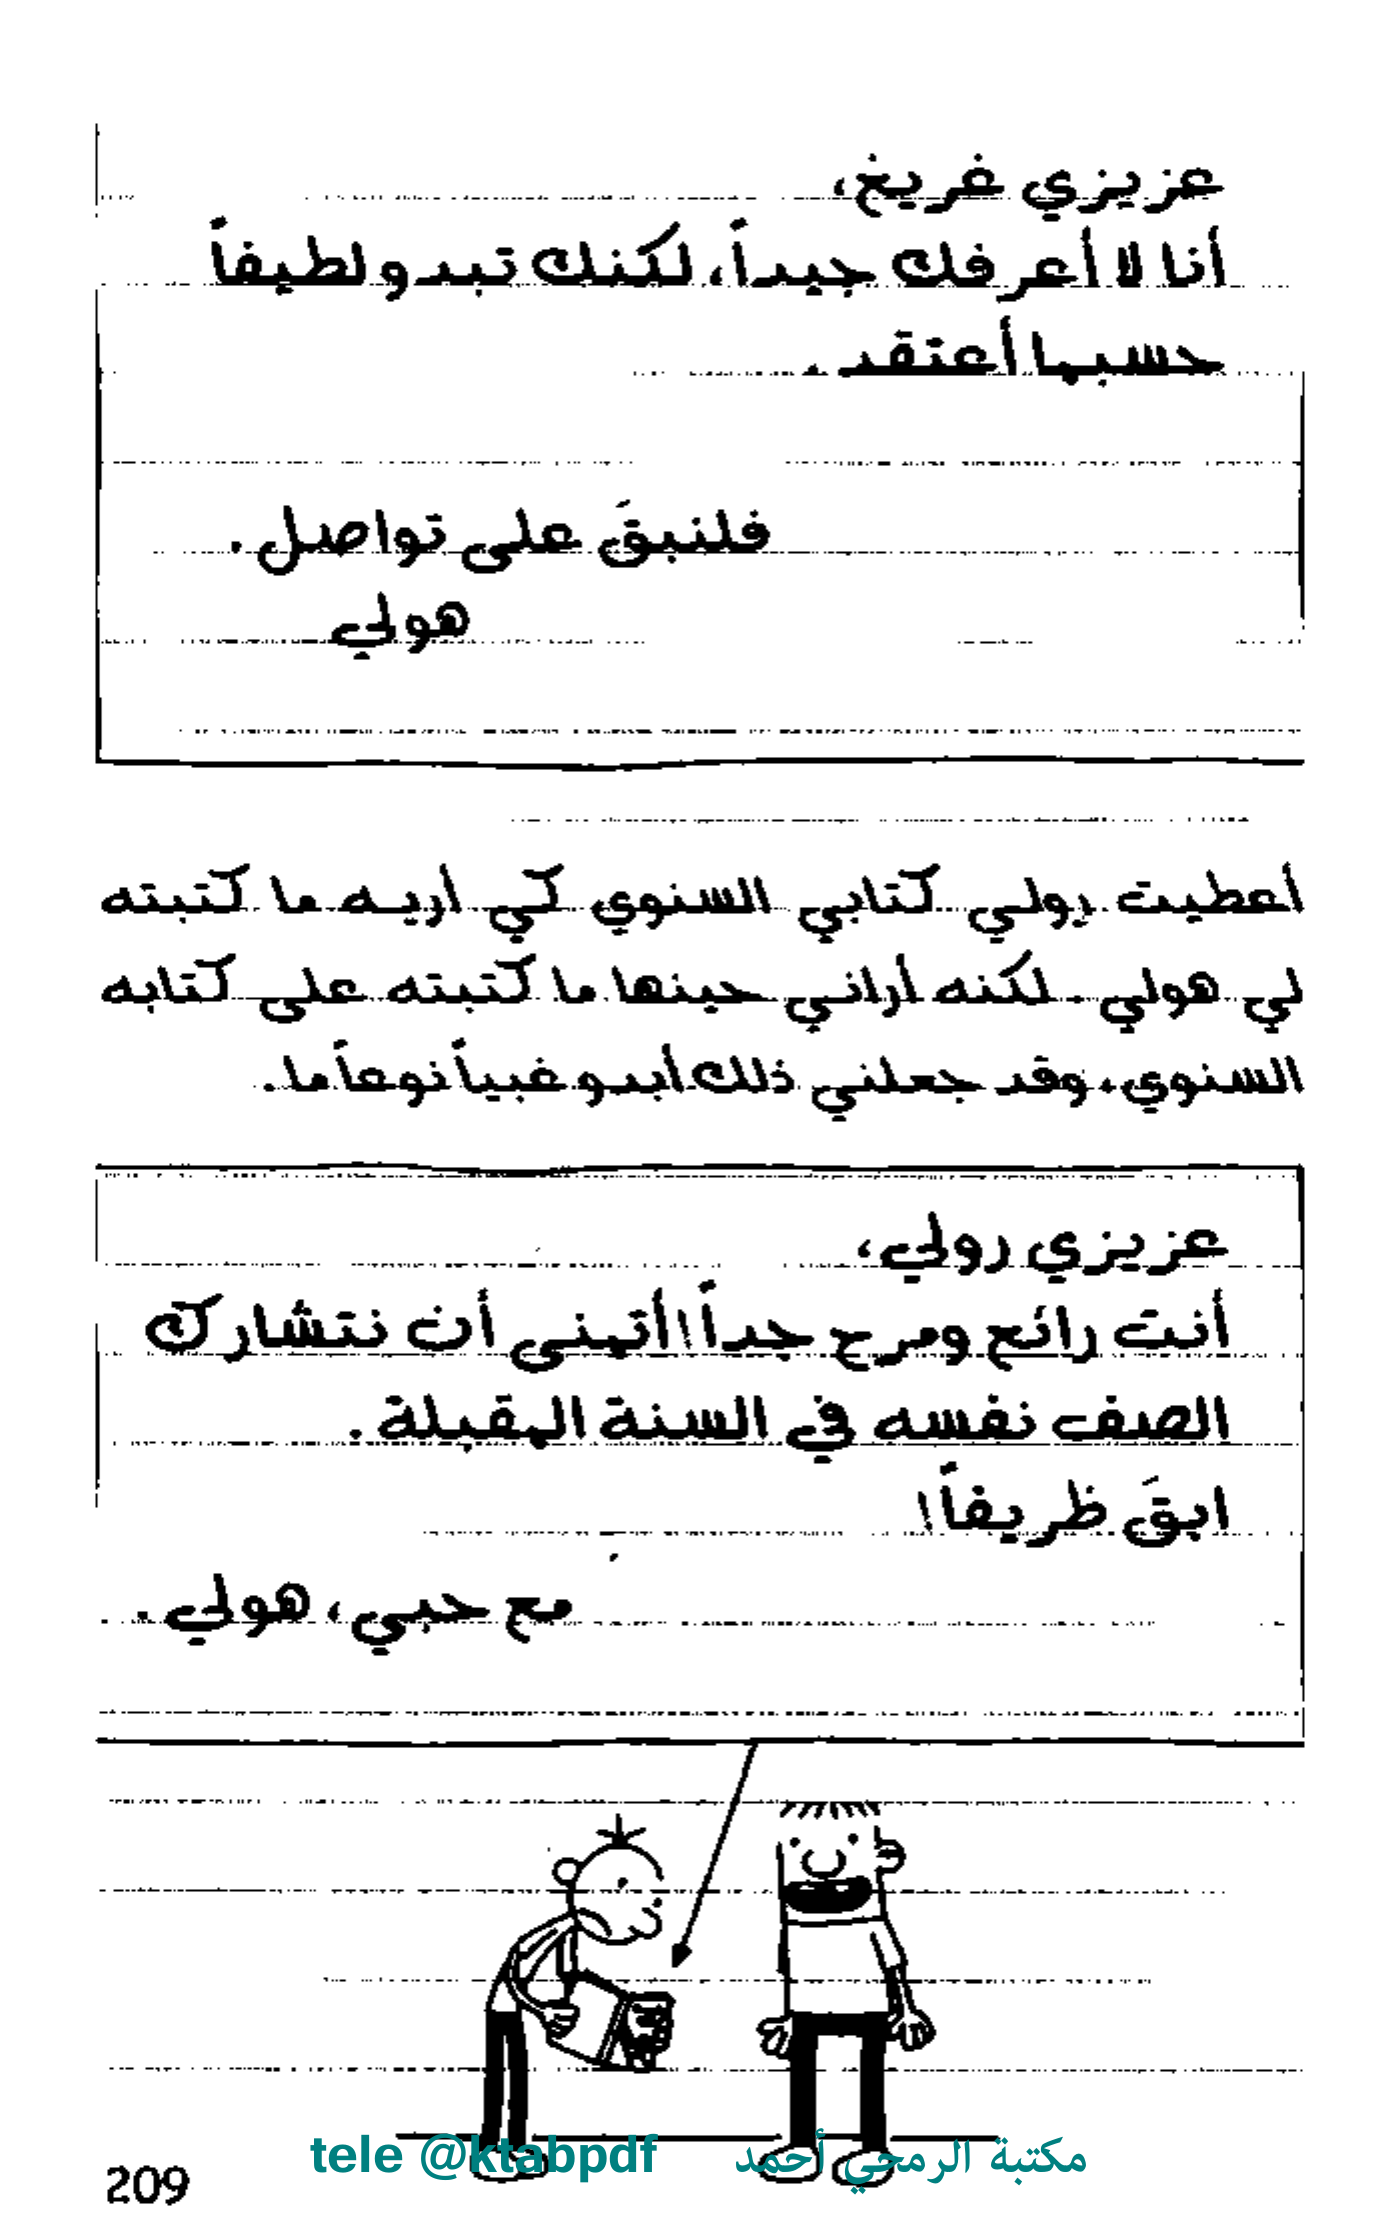 عزيزي غريغ،
أنا لا أعرفك جيداً، لكنك تبدو لطيفاً
حسبما أعتقد.
فلنبقَ على تواصل.
هولي
أعطيت رولي كتابي السنوي كي أريه ما كتبته
لي هولي. لكنه أراني حينها ما كتبته على كتابه
السنوي، وقد جعلني ذلك أبدو غبياً نوعاً ما.
عزيزي رولي،
أنت رائع ومرح جداً! أتمنى أن نتشارك
الصف نفسه في السنة المقبلة.
ابقَ ظريفاً!
مع حبي، هولي.
tele @ktabpdf مكتبة الرمحي أحمد
209